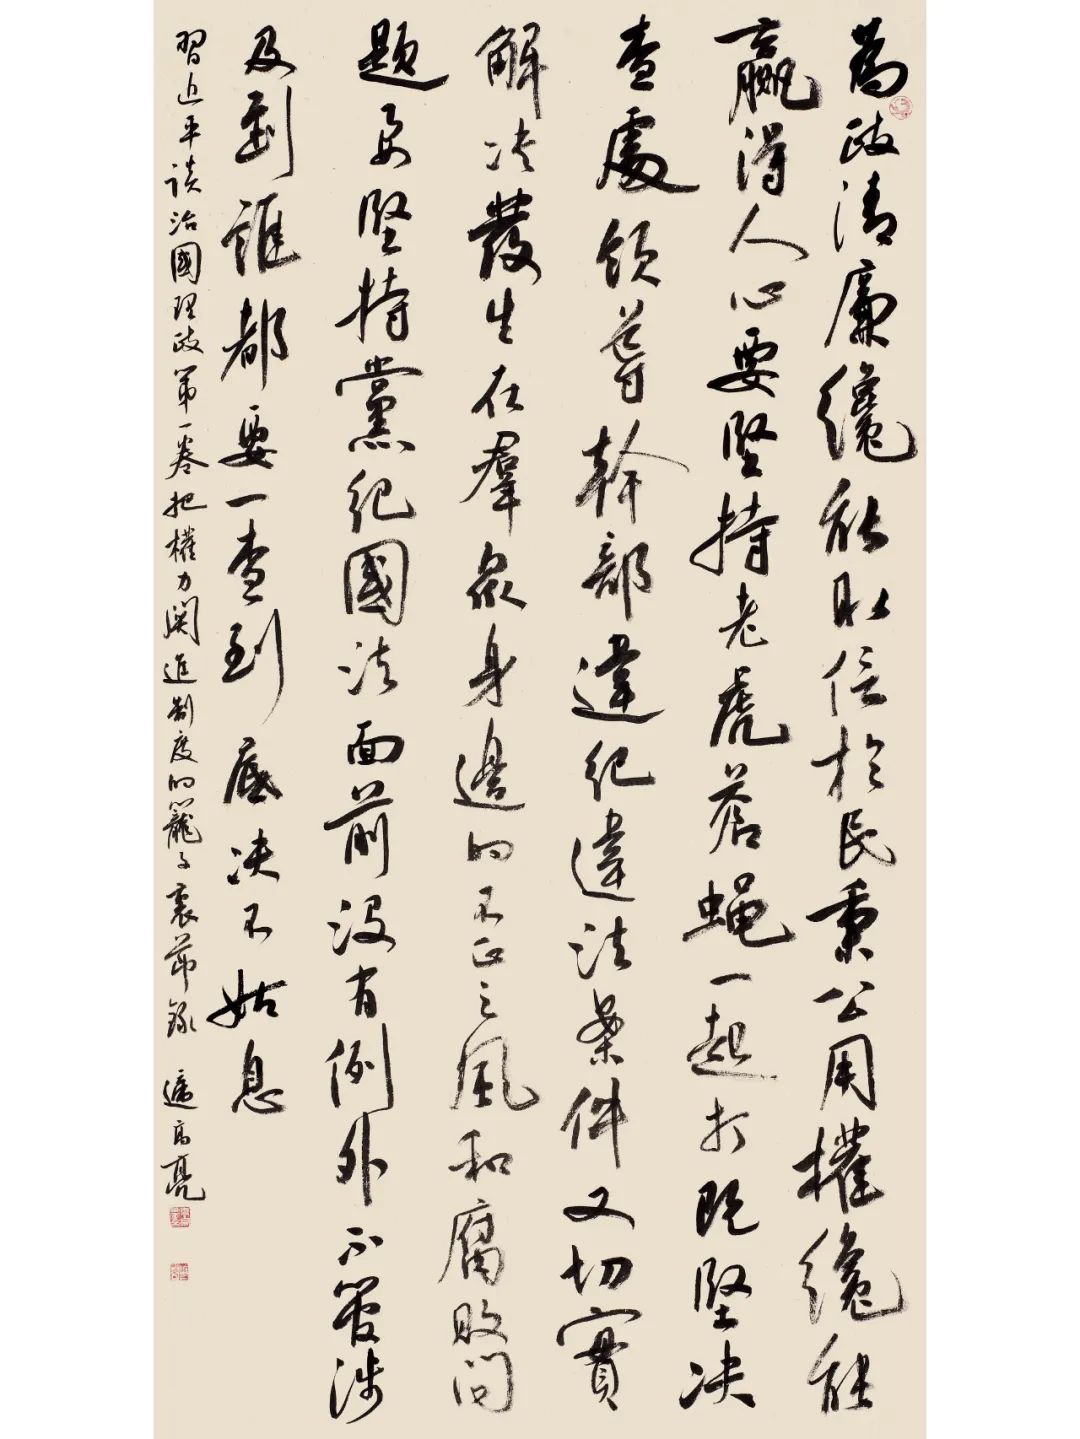 為政清廉纔能取信於民秉公用權纔能
贏得人心要堅持老虎蒼蝇一起打既堅决
查處領導幹部違紀違法案件又切實
解决發生在羣衆身邊的不正之風和腐敗问
题要堅持黨紀國法面前没有例外不管涉
及到誰都要一查到底决不姑息
習近平談治國理政第一卷把權力関進制度的籠子裏節錄 高亮